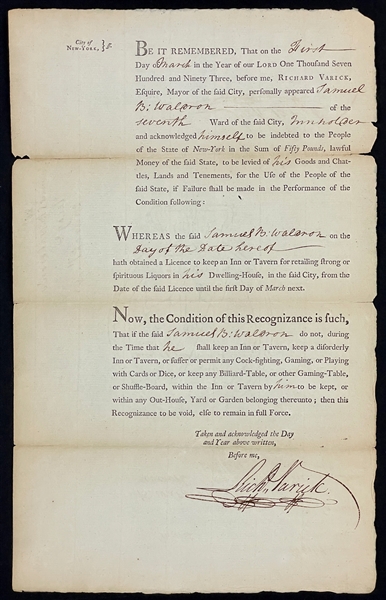 City of
NEW-YORK, } ss.
BE IT REMEMBERED, That on the First
Day March in the Year of our LORD One Thousand Seven
Hundred and Ninety Three, before me, RICHARD VARICK,
Esquire, Mayor of the said City, personally appeared Samuel
B: Waldron of the
seventh Ward of the said City, Innholder
and acknowledged himself to be indebted to the People
of the State of New-York in the Sum of Fifty Pounds, lawful
Money of the said State, to be levied of his Goods and Chat-
tles, Lands and Tenements, for the Use of the People of the
said State, if Failure shall be made in the Performance of the
Condition following:
WHEREAS the said Samuel B: Waldron on the
Day of the Date hereof
hath obtained a Licence to keep an Inn or Tavern for retailing strong or
spirituous Liquors in his Dwelling-House, in the said City, from
the Date of the said Licence until the first Day of March next.
Now, the Condition of this Recognizance is such,
That if the said Samuel B: Waldron do not, during
the Time that he shall keep an Inn or Tavern, keep a disorderly
Inn or Tavern, or suffer or permit any Cock-fighting, Gaming, or Playing
with Cards or Dice, or keep any Billiard-Table, or other Gaming-Table,
or Shuffle-Board, within the Inn or Tavern by him to be kept, or
within any Out-House, Yard or Garden belonging thereunto; then this
Recognizance to be void, else to remain in full Force.
Taken and acknowledged the Day
and Year above written,
Before me,
Richd Varick.